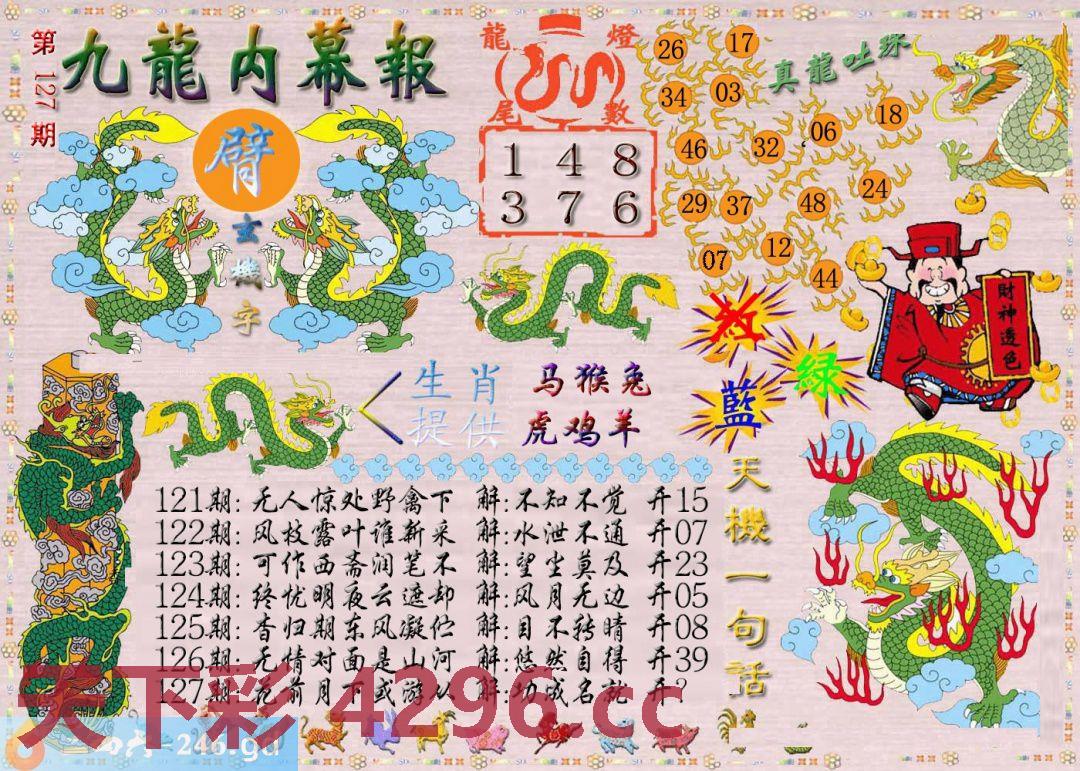 第127期
九龍内幕報
臂
玄機字
龍燈
尾數
1 4 8
3 7 6
真龍吐珠
26 17
34 03
46 32 06 18
29 37 48 24
07 12 44
紅
藍
綠
財神透色
生肖提供
马猴兔
虎鸡羊
天機一句話
121期: 无人惊处野禽下 解:不知不觉 开15
122期: 风枝露叶谁新采 解:水泄不通 开07
123期: 可作西斋润笔不 解:望尘莫及 开23
124期: 终忧明夜云遮却 解:风月无边 开05
125期: 杳归期东风凝伫 解:目不转睛 开08
126期: 无情对面是山河 解:悠然自得 开39
127期: 花前月下或游从 解:功成名就 开?
天下彩 4296.cc
=246.gd